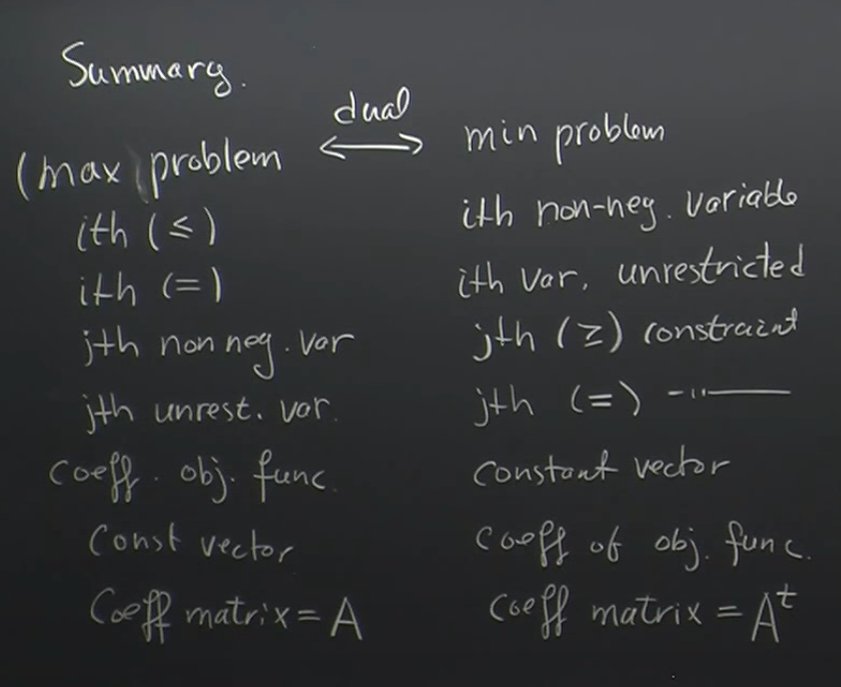 Summary.
(max) problem <-dual-> min problem
ith (≤) ith non-neg. variable
ith (=) ith var. unrestricted
jth non neg. var jth (≥) constraint
jth unrest. var. jth (=) -〃-
coeff. obj. func. constant vector
Const vector coeff of obj. func.
Coeff matrix = A coeff matrix = Aᵗ